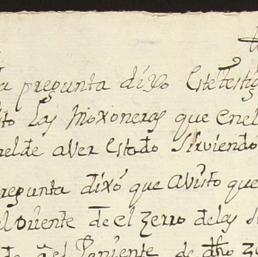 a pregunta dixo Este testig
to Las moxoneras que en el
el de aver Estado sirviendo
regunta dixo que a visto que
el Puente de el Zerro de las
de el Poniente de dho